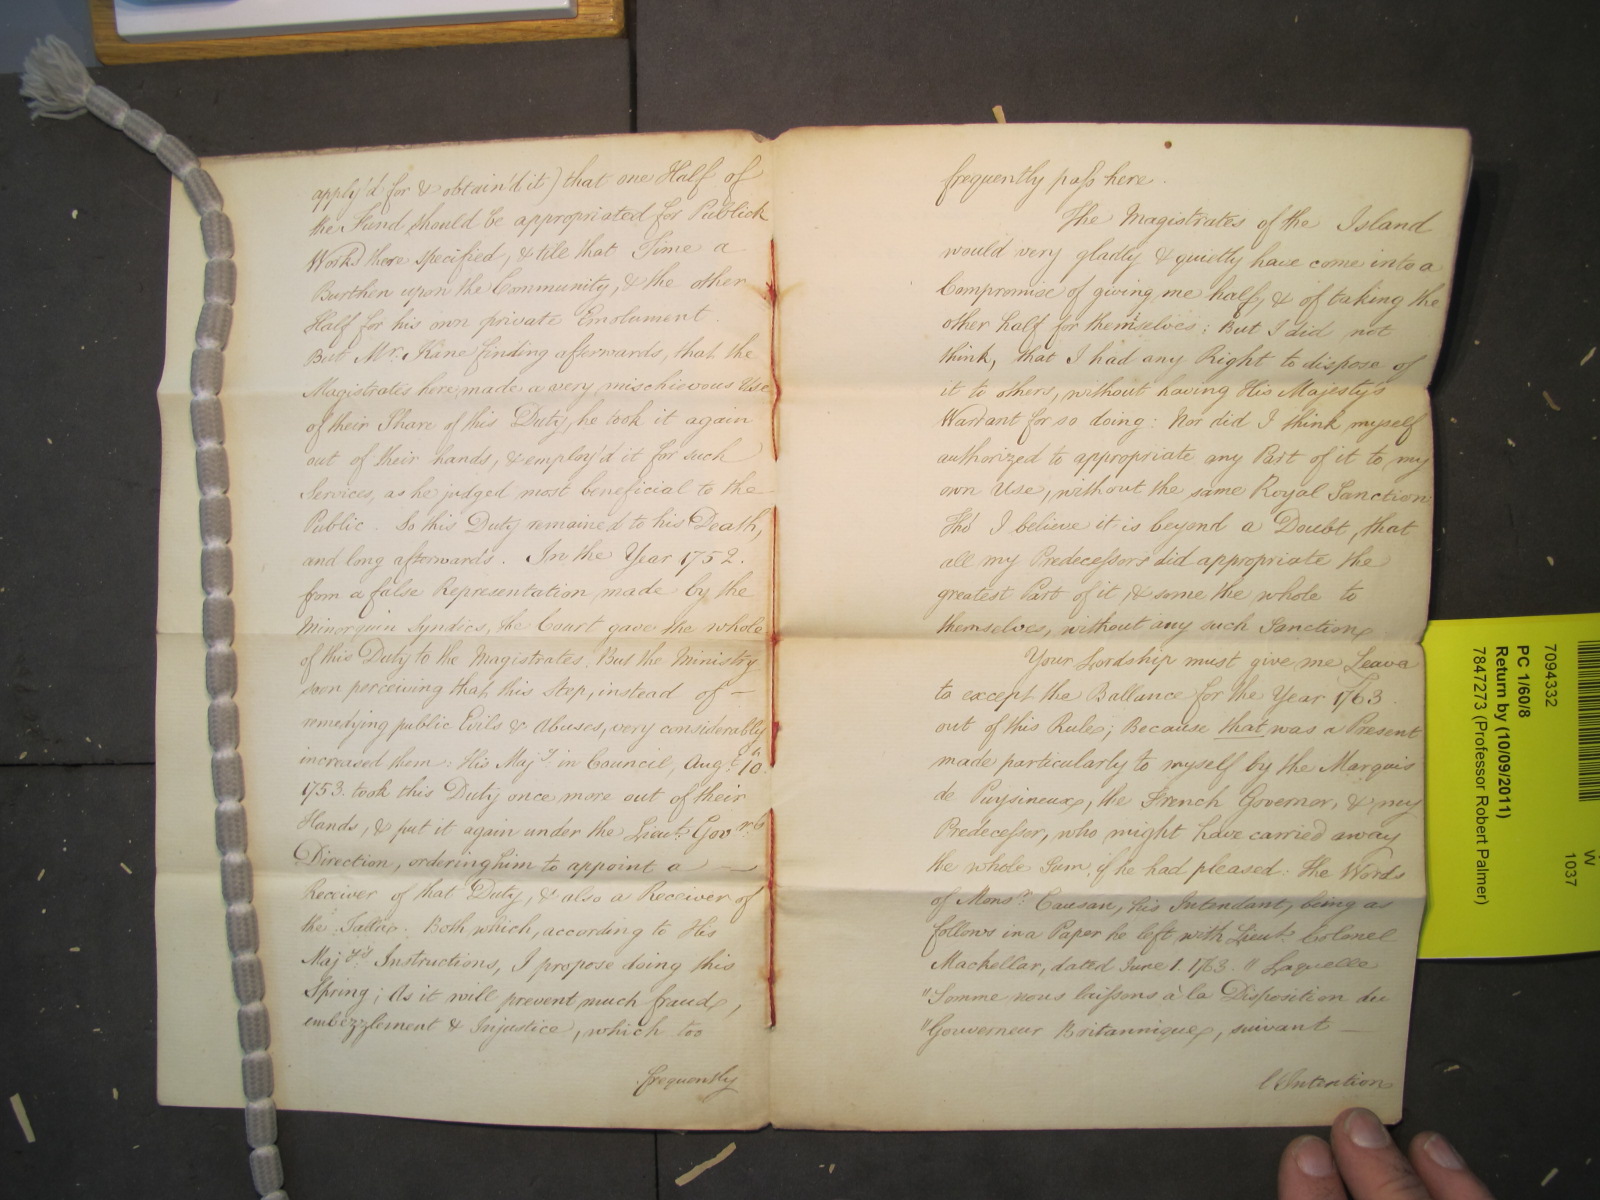 apply'd for & obtain'd it) that one Half of
the Fund should be appropriated for Publick
Works there specified, & till that Time a
Burthen upon the Community, & the other
Half for his own private Emolument.
But Mr. Kane finding afterwards, that the
Magistrates here made a very mischievous Use
of their Share of this Duty, he took it again
out of their hands, & employ'd it for such
Services, as he judged most beneficial to the
Public. So this Duty remained to his Death,
and long afterwards. In the Year 1752.
from a false Representation made by the
Minorquin Syndics, the Court gave the whole
of this Duty to the Magistrates. But the Ministry
soon perceiving that this Step, instead of —
remedying public Evils & Abuses, very considerably
increased them: His Maj.ty in Council, Aug.t 10th
1753. took this Duty once more out of their
Hands, & put it again under the Lieut. Govrs
Direction, ordering him to appoint a —
Receiver of that Duty, & also a Receiver of
the Tallie. Both which, according to His
Maj.ty's Instructions, I propose doing this
Spring; As it will prevent much fraud,
embezzlement & Injustice, which too
frequently
frequently pass here.
The Magistrates of the Island
would very gladly & quietly have come into a
Compromise of giving me half, & of taking the
other half for themselves: But I did not
think, that I had any Right to dispose of
it to others, without having His Majesty's
Warrant for so doing: Nor did I think myself
authorized to appropriate any Part of it to my
own Use, without the same Royal Sanction
Tho' I believe it is beyond a Doubt, that
all my Predecessors did appropriate the
greatest Part of it & some the whole to
themselves, without any such Sanction.
Your Lordship must give me Leave
to except the Ballance for the Year 1763.
out of this Rule; Because that was a Present
made particularly to myself by the Marquis
de Puysieux, the French Governor, & my
Predecessor, who might have carried away
the whole Sum, if he had pleased: the Words
of Monsr. Causan, his Intendant, being as
follows in a Paper he left with Lieut. Colonel
Mackellar, dated June 1. 1763. "Laquelle
"Somme nous laissons à la Disposition du
"Gouverneur Britannique, suivant —
l'Intention
7094332
PC 1/60/8
Return by (10/09/2011)
7847273 (Professor Robert Palmer)
W
1037